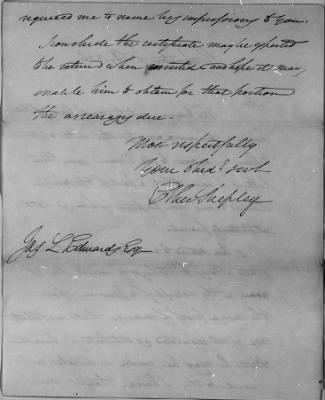 requested me to name his impressions to you.
I conclude the certificate may be expected
to be returned when corrected and hope it may
enable him to obtain for that portion
the arrearages due.
Most respectfully
Your Obed.t Servt
Ether Shepley
Jas L Edwards Esq